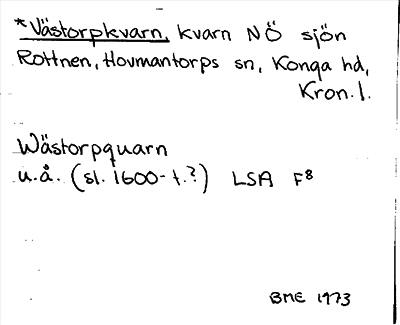 *Västorpkvarn, kvarn NÖ sjön
Rottnen, Hovmantorps sn, Konga hd,
Kron. l.
Wästorpquarn
u.å. (sl. 1600-t.?) LSA F8
BME 1973